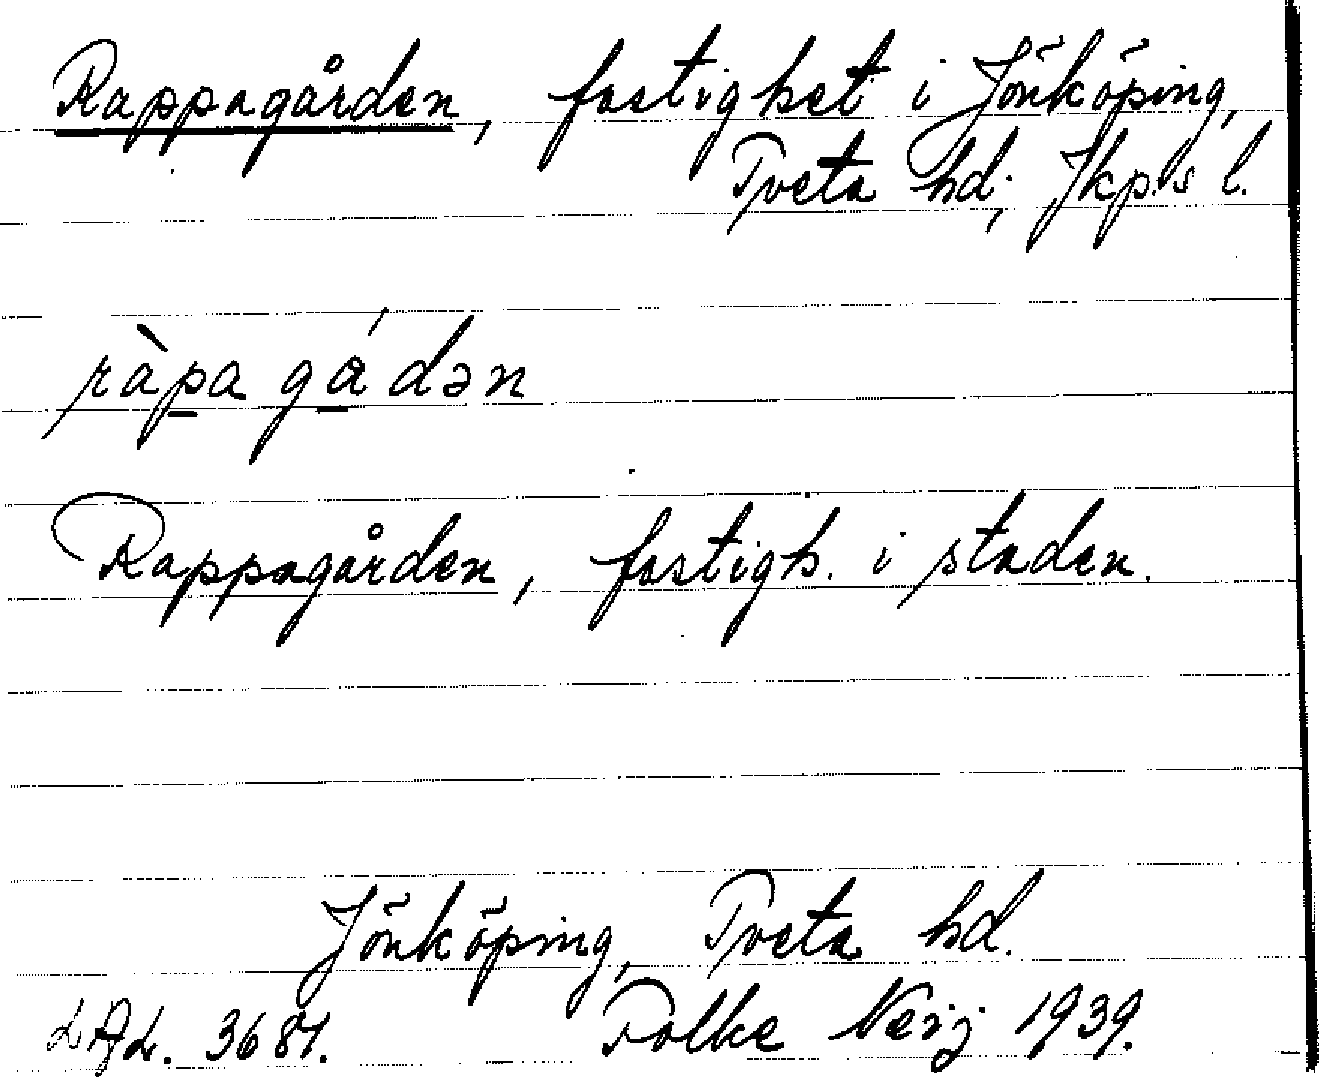 Rappagården, fastighet i Jönköping,
Tveta hd; Jkps l.
ràpa gádən
Rappagården, fastigh. i staden.
Jönköping, Tveta hd.
LAL. 3681. Folke Neij 1939.